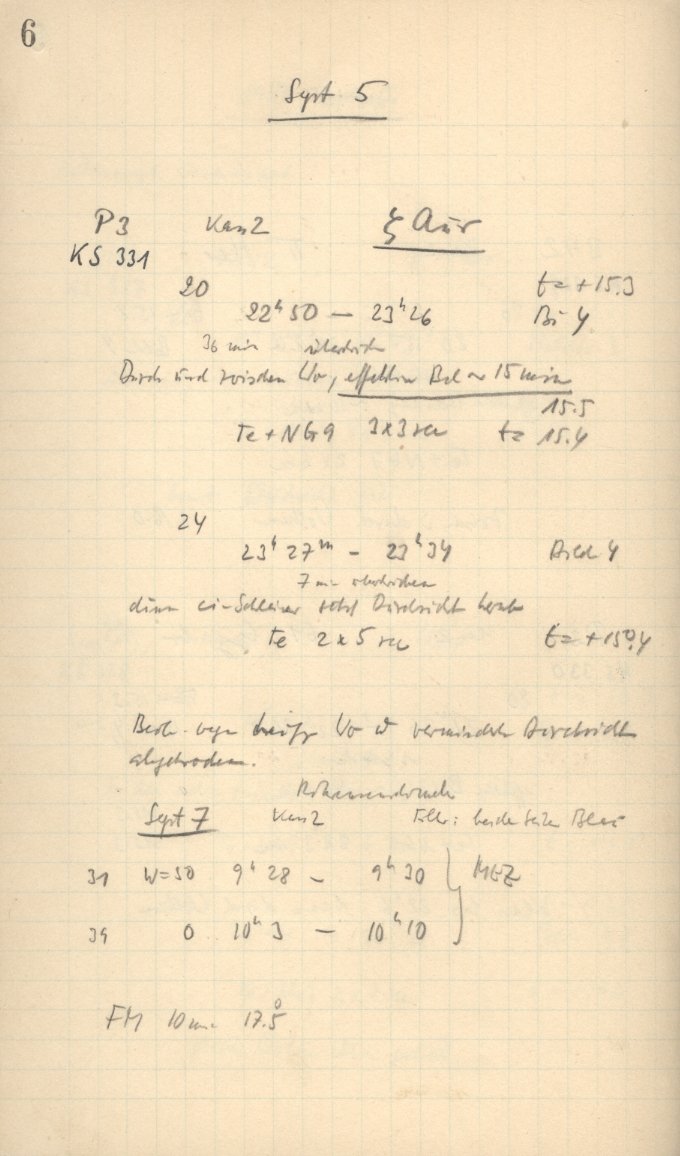 6
Sept 5
P3 Kas 2 ξ Aur
KS 331
20 t = +15.3
22ʰ50 — 23ʰ26 Bi 4
36 min überstrichen
Durch und zwischen Wo, effektive Bel ∾ 15 min
15.5
Te + NG9 3x3 sec t = 15.4
24
23ʰ27ᵐ - 23ʰ34 Bild 4
7 min überstrichen
ci-Schleier setzt Durchsicht herab
Te 2 x 5 sec t = +15°.4
Beob. wegen Wo u verminderter Durchsicht
abgebrochen.
Sept 7 Kas 2 Filter: beide Seiten Blau
31 W=50 9ʰ28 - 9ʰ30 MEZ
34 0 10ʰ3 — 10ʰ10
FM 10 min 17.5°